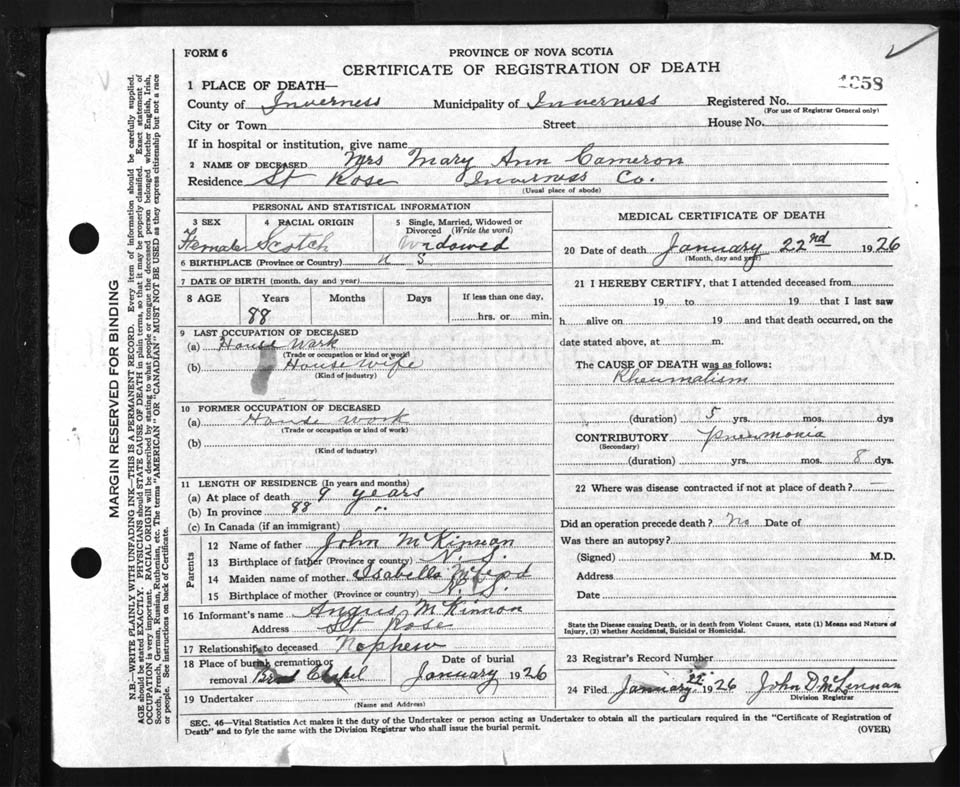 FORM 6
PROVINCE OF NOVA SCOTIA
CERTIFICATE OF REGISTRATION OF DEATH
1 PLACE OF DEATH—
1358
County of Inverness Municipality of Inverness Registered No.
(For use of Registrar General only)
City or Town Street House No.
If in hospital or institution, give name
2 NAME OF DECEASED Mrs Mary Ann Cameron
Residence St Rose Inverness Co.
(Usual place of abode)
PERSONAL AND STATISTICAL INFORMATION
3 SEX 4 RACIAL ORIGIN 5 Single, Married, Widowed or Divorced (Write the word)
Female Scotch Widowed
6 BIRTHPLACE (Province or Country) N S
7 DATE OF BIRTH (month, day and year)
8 AGE Years Months Days If less than one day,
88 hrs. or min.
9 LAST OCCUPATION OF DECEASED
(a) House Work
(Trade or occupation or kind of work)
(b) House wife
(Kind of industry)
10 FORMER OCCUPATION OF DECEASED
(a) House work
(Trade or occupation or kind of work)
(b)
(Kind of industry)
11 LENGTH OF RESIDENCE (In years and months)
(a) At place of death 9 years
(b) In province 88 "
(c) In Canada (if an immigrant)
Parents
12 Name of father John McKinnan
13 Birthplace of father (Province or country) N. S.
14 Maiden name of mother Isabella
15 Birthplace of mother (Province or country) N. S.
16 Informant's name Angus McKinnon
Address St Rose
17 Relationship to deceased Nephew
18 Place of burial, cremation or removal
Date of burial
January 1926
19 Undertaker
(Name and Address)
MEDICAL CERTIFICATE OF DEATH
20 Date of death January 22nd 1926
(Month, day and year)
21 I HEREBY CERTIFY, that I attended deceased from
19 to 19 that I last saw
h alive on 19 and that death occurred, on the
date stated above, at m.
The CAUSE OF DEATH was as follows:
Rheumatism
(duration) 5 yrs. mos. dys
CONTRIBUTORY Pneumonia
(Secondary)
(duration) yrs. mos. 8 dys.
22 Where was disease contracted if not at place of death? —
Did an operation precede death? No Date of
Was there an autopsy?
(Signed) M.D.
Address
Date
State the Disease causing Death, or in death from Violent Causes, state (1) Means and Nature of
Injury, (2) whether Accidental, Suicidal or Homicidal.
23 Registrar's Record Number
24 Filed January 1926 John D McLennan
Division Registrar
SEC. 46—Vital Statistics Act makes it the duty of the Undertaker or person acting as Undertaker to obtain all the particulars required in the "Certificate of Registration of
Death" and to fyle the same with the Division Registrar who shall issue the burial permit. (OVER)
MARGIN RESERVED FOR BINDING
N.B.—WRITE PLAINLY WITH UNFADING INK—THIS IS A PERMANENT RECORD. Every item of information should be carefully supplied.
AGE should be stated EXACTLY. PHYSICIANS should STATE CAUSE OF DEATH in plain terms, so that it may be properly classified. Exact statement of
OCCUPATION is very important. RACIAL ORIGIN will be described by stating to what people or tongue the deceased person belonged whether English, Irish,
Scotch, French, German, Russian, Ruthenian, etc. The terms "AMERICAN" OR "CANADIAN" MUST NOT BE USED as they express citizenship but not a race
or people. See instructions on back of Certificate.